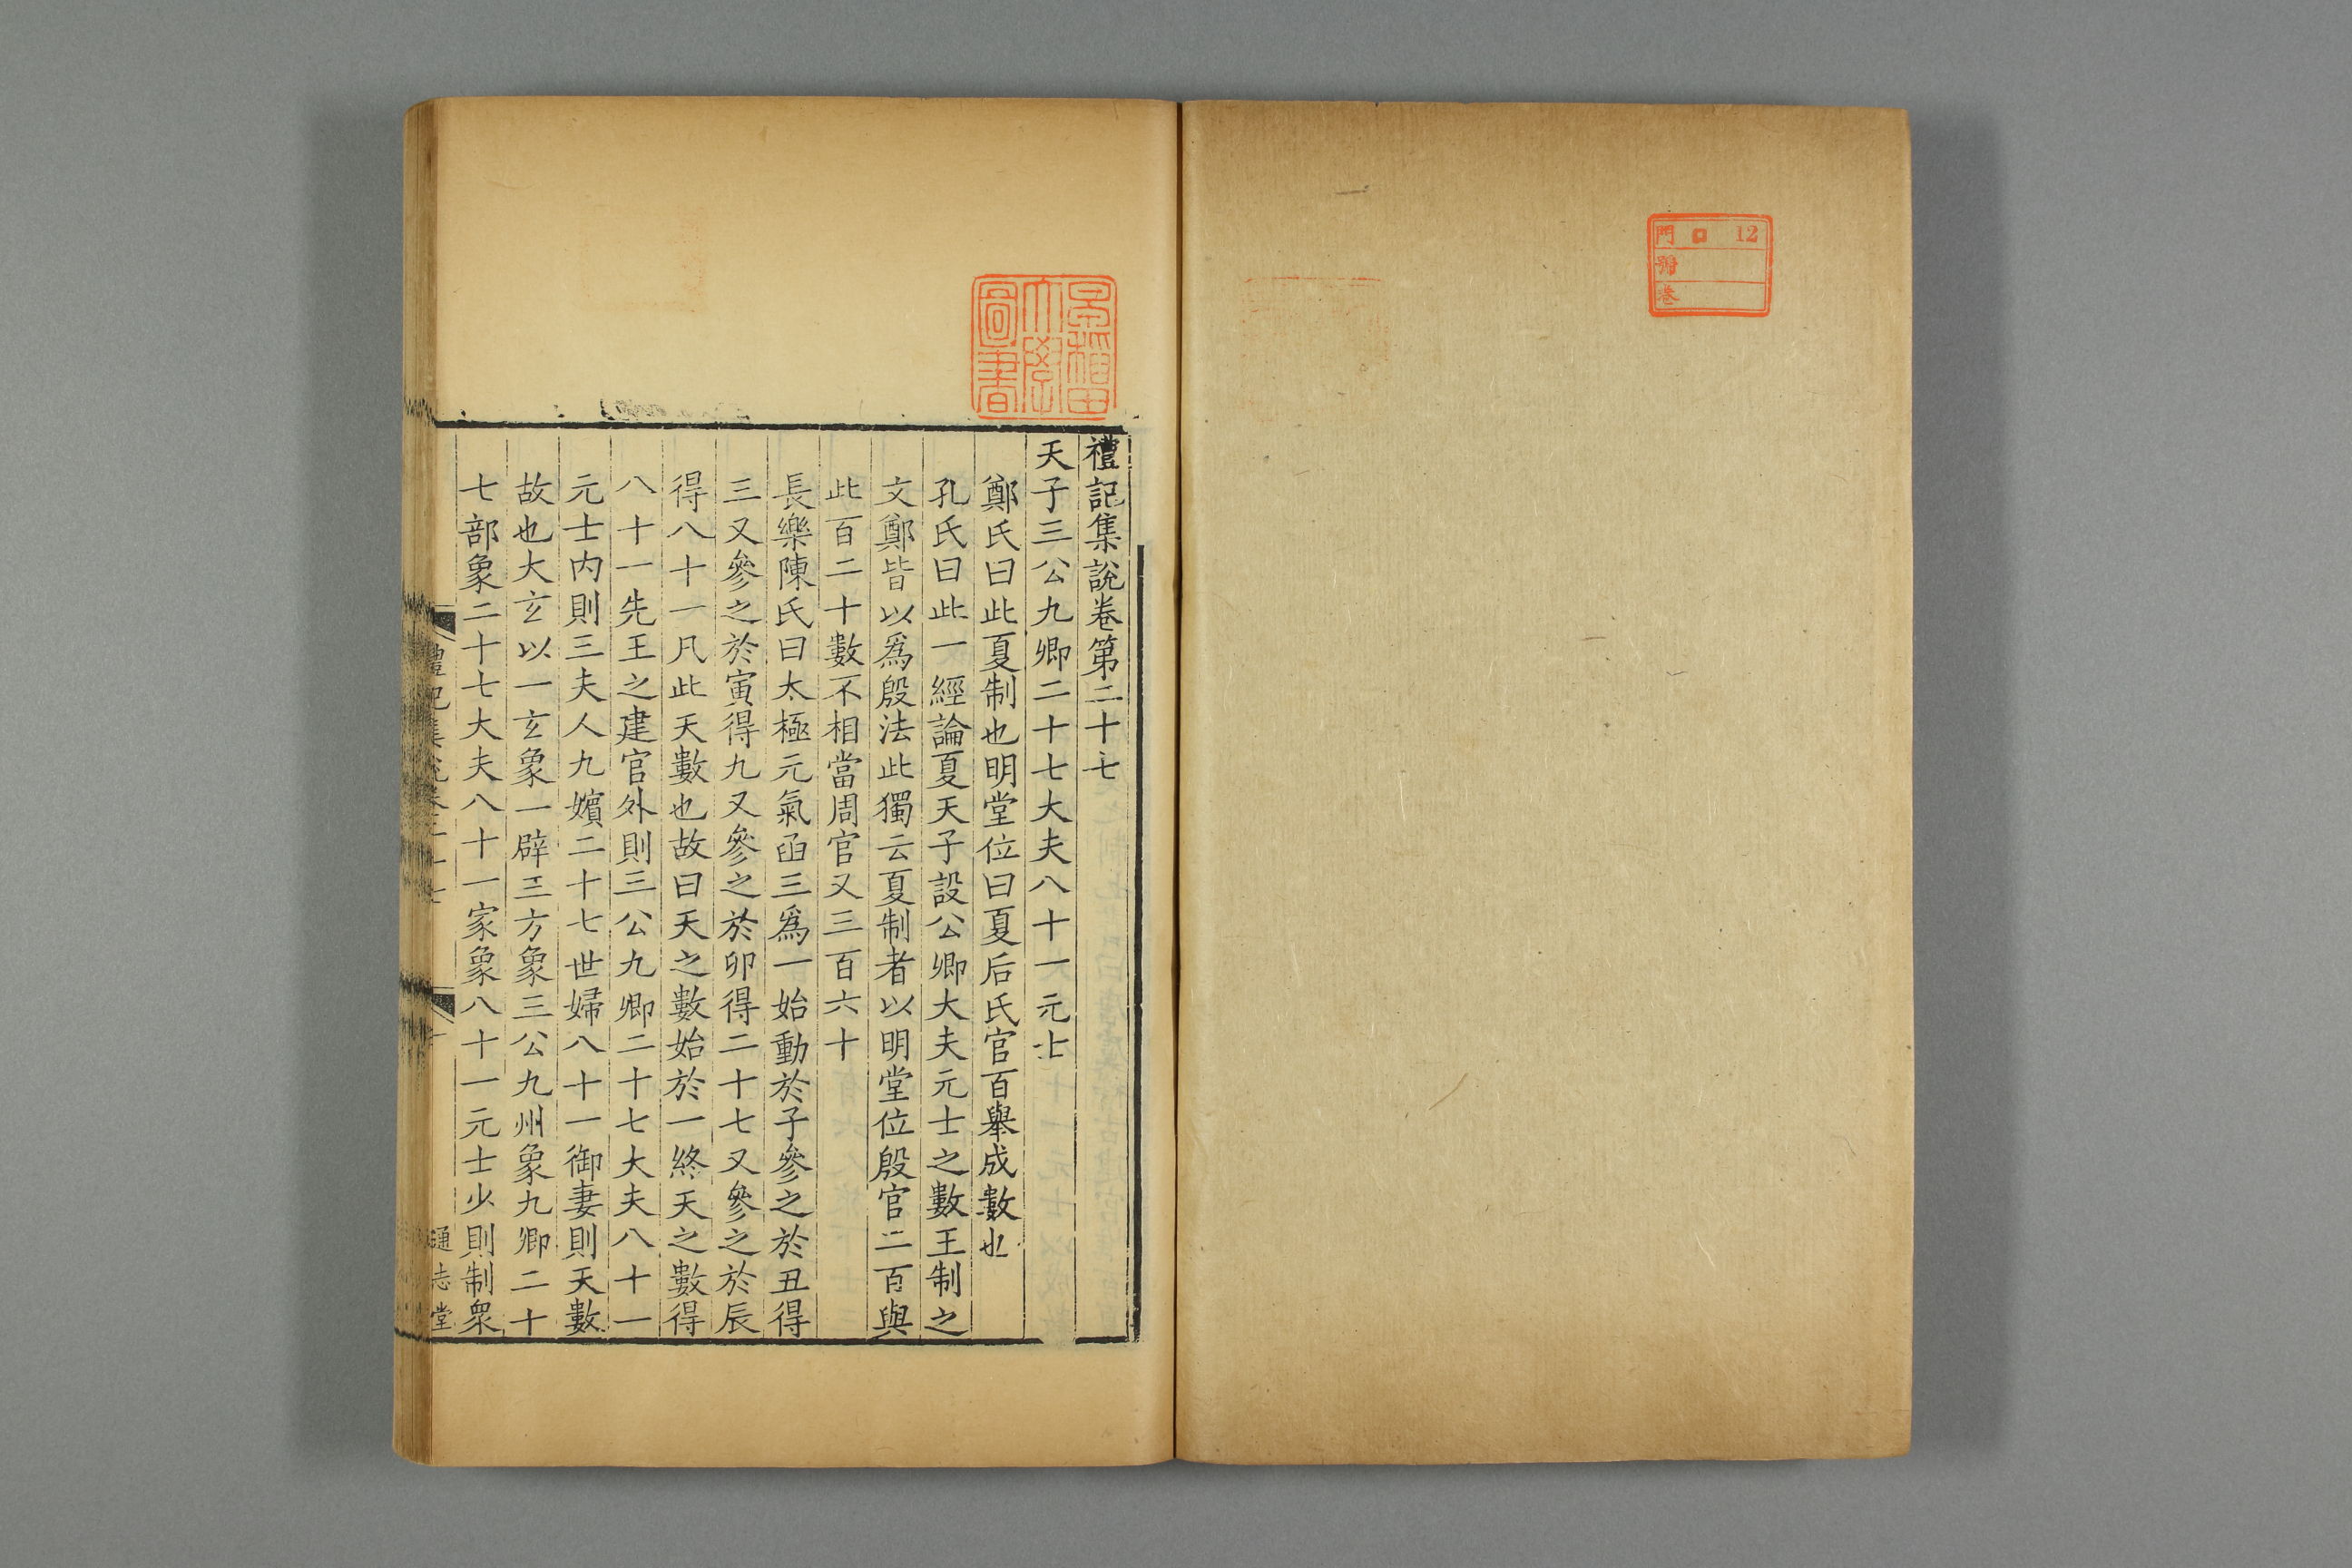 門 口 12
號
卷
早稲田
大學
圖書
禮記集說卷第二十七
天子三公九卿二十七大夫八十一元士
鄭氏曰此夏制也明堂位曰夏后氏官百舉成數也
孔氏曰此一經論夏天子設公卿大夫元士之數王制之
文鄭皆以爲殷法此獨云夏制者以明堂位殷官二百與
此百二十數不相當周官又三百六十
長樂陳氏曰太極元氣函三爲一始動於子參之於丑得
三又參之於寅得九又參之於卯得二十七又參之於辰
得八十一凡此天數也故曰天之數始於一終天之數得
八十一先王之建官外則三公九卿二十七大夫八十一
元士内則三夫人九嬪二十七世婦八十一御妻則天數
故也大玄以一玄象一辟三方象三公九州象九卿二十
七部象二十七大夫八十一家象八十一元士少則制衆
禮記集說卷二十七 一 通志堂